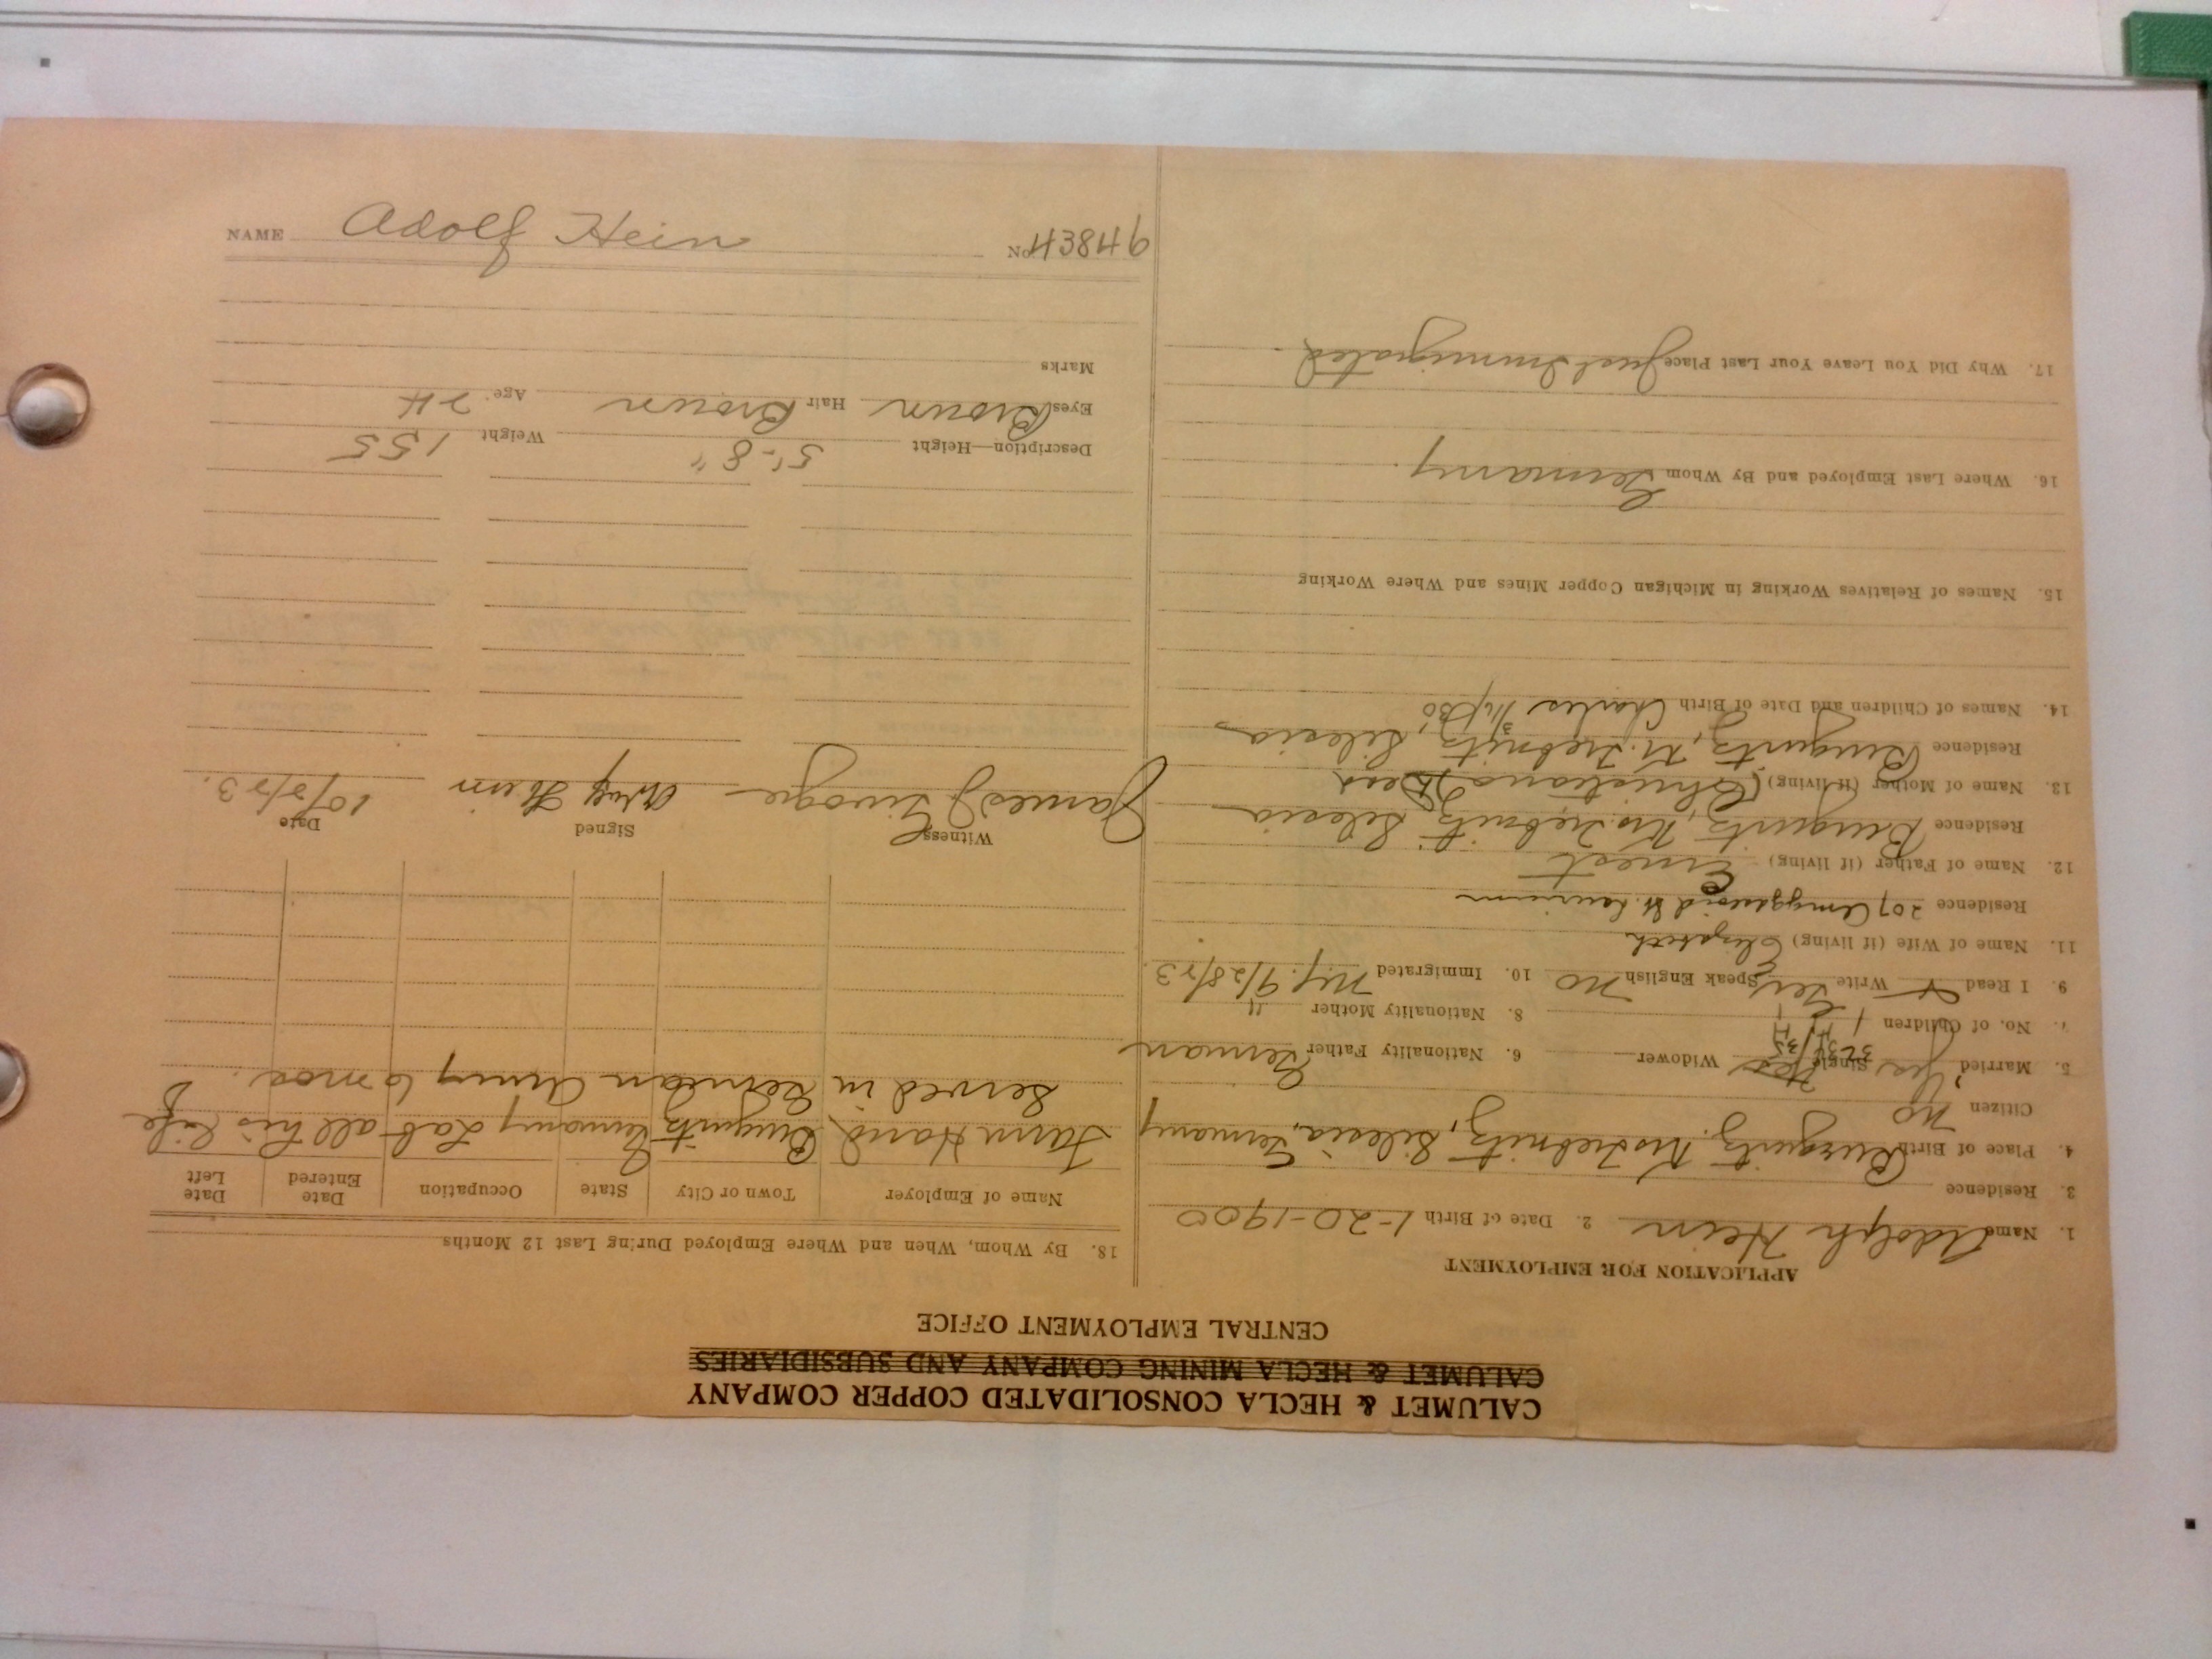 CALUMET & HECLA CONSOLIDATED COPPER COMPANY
CALUMET & HECLA MINING COMPANY AND SUBSIDIARIES
CENTRAL EMPLOYMENT OFFICE
APPLICATION FOR EMPLOYMENT
1. Name Adolph Hein 2. Date of Birth 1-20-1900
3. Residence
4. Place of Birth Silesia, Germany
Citizen No
5. Married Yes Single Widower 6. Nationality Father German
7. No. of Children 1 8. Nationality Mother "
9. I Read Write Speak English No 10. Immigrated 9/28/23.
11. Name of Wife (if living) Elizabeth
Residence 207 Amygdaloid St. Laurium
12. Name of Father (if living) Ernest
Residence Silesia
13. Name of Mother (if living) (Christiana) Dead
Residence Silesia
14. Names of Children and Date of Birth Charles
15. Names of Relatives Working in Michigan Copper Mines and Where Working
16. Where Last Employed and By Whom Germany.
17. Why Did You Leave Your Last Place Just Immigrated.
18. By Whom, When and Where Employed During Last 12 Months
Name of Employer Town or City State Occupation Date Entered Date Left
Farm Hand Germany Lab all his life
Served in German Army 6 mos.
Witness Signed Date
James 10/2/23.
Description—Height 5'-8" Weight 155
Eyes Brown Hair Brown Age 24
Marks
No. 94834
NAME Adolf Hein